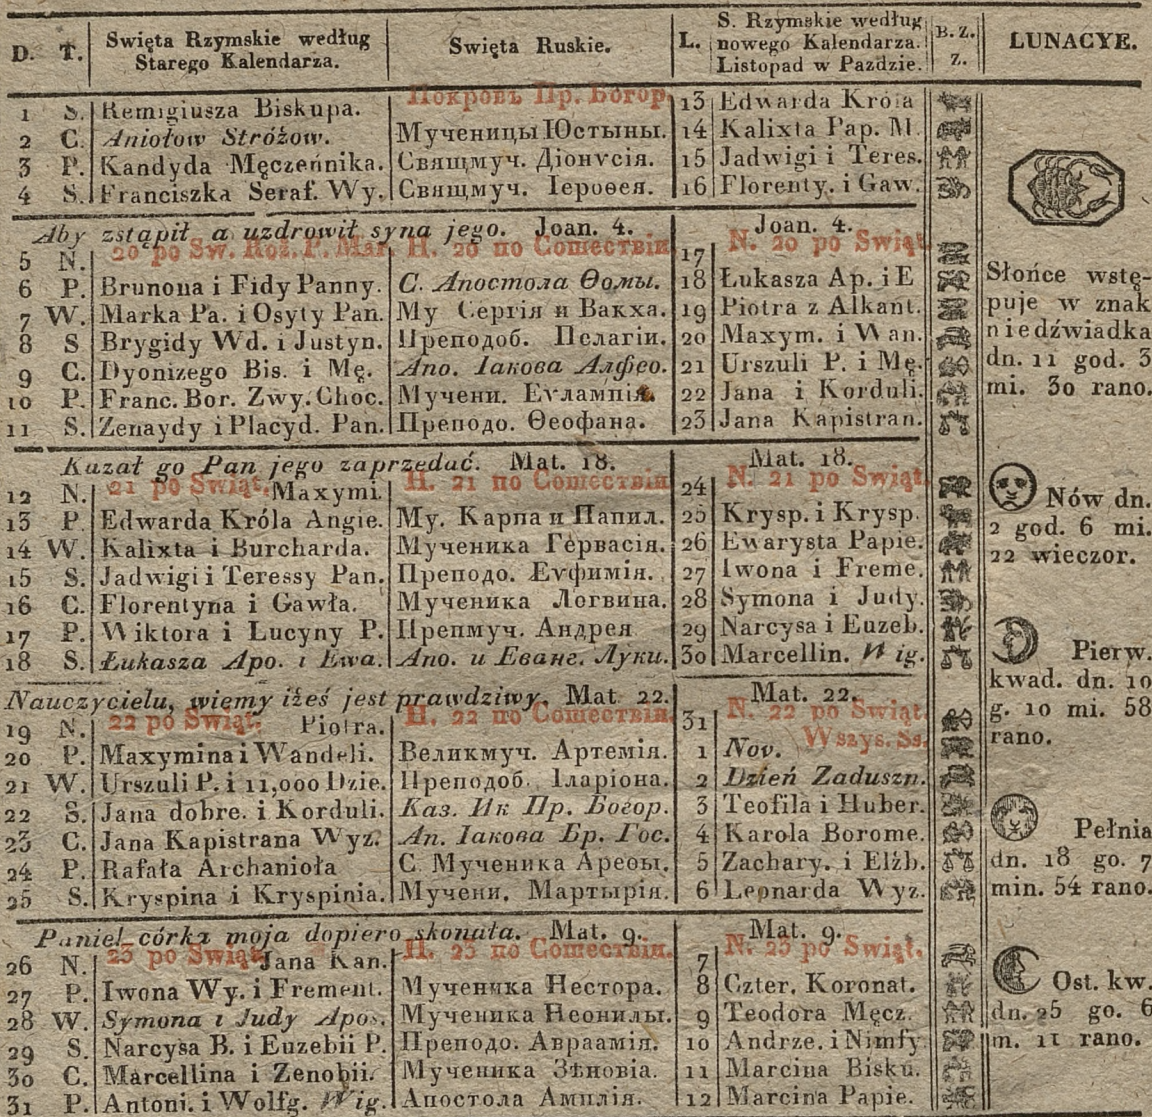 D. T. Święta Rzymskie według Starego Kalendarza. Święta Ruskie. L. S. Rzymskie według nowego Kalendarza. Listopad w Pazdzie. B. Z. Z. LUNACYE.
1 S. Remigiusza Biskupa. Покровъ Пр. Богор. 13 Edwarda Króla
2 C. Aniołow Stróżow. Мученицы Юстыны. 14 Kalixta Pap. M.
3 P. Kandyda Męczennika. Свящмуч. Діонѵсія. 15 Jadwigi i Teres.
4 S. Franciszka Seraf. Wy. Свящмуч. Іероѳея. 16 Florenty. i Gaw.
Aby zstąpił a uzdrowił syna jego. Joan. 4. Joan. 4.
5 N. 20 po Sw. Roż. P. Mar. Н. 20 по Сошествіи 17 N. 20 po Swiąt
6 P. Brunona i Fidy Panny. С. Апостола Ѳомы. 18 Łukasza Ap. i E
7 W. Marka Pa. i Osyty Pan. Му Сергія и Вакха. 19 Piotra z Alkant.
8 S Brygidy Wd. i Justyn. Преподоб. Пелагіи. 20 Maxym. i Wan.
9 C. Dyonizego Bis. i Mę. Апо. Іакова Алфео. 21 Urszuli P. i Mę.
10 P. Franc. Bor. Zwy. Choc. Мучени. Еѵлампія. 22 Jana i Korduli.
11 S. Zenaydy i Placyd. Pan. Преподо. Ѳеофана. 23 Jana Kapistran.
Kazał go Pan jego zaprzedać. Mat. 18. Mat. 18.
12 N. 21 po Swiąt. Maxymi. Н. 21 по Сошествіи 24 N. 21 po Swiąt.
13 P. Edwarda Króla Angie. Му. Карпа и Папил. 25 Krysp. i Krysp.
14 W. Kalixta i Burcharda. Мученика Гервасія. 26 Ewarysta Papie.
15 S. Jadwigi i Teressy Pan. Преподо. Еѵфимія. 27 Iwona i Freme.
16 C. Florentyna i Gawła. Мученика Логвина. 28 Symona i Judy.
17 P. Wiktora i Lucyny P. Препмуч. Андрея 29 Narcysa i Euzeb.
18 S. Łukasza Apo. i Ewa. Апо. и Еванг. Луки. 30 Marcellin. Wig.
Nauczycielu, wiemy iżeś jest prawdziwy. Mat 22. Mat. 22.
19 N. 22 po Swiąt. Piotra. Н. 22 по Сошествіи 31 N. 22 po Swiąt.
20 P. Maxymina i Wandeli. Великмуч. Артемія. 1 Nov. Wszys. Ss.
21 W. Urszuli P. i 11,000 Dzie. Преподоб. Іларіона. 2 Dzień Zaduszn.
22 S. Jana dobre. i Korduli. Каз. Ик Пр. Богор. 3 Teofila i Huber.
23 C. Jana Kapistrana Wyz. Ап. Іакова Бр. Гос. 4 Karola Borome.
24 P. Rafała Archanioła С. Мученика Ареѳы. 5 Zachary. i Elżb.
25 S. Kryspina i Kryspinia. Мучени. Мартырія. 6 Leonarda Wyz.
Paniel córka moja dopiero skonała. Mat. 9. Mat. 9.
26 N. 23 po Swiąt Jana Kan. Н. 23 по Сошествіи. 7 N. 23 po Swiąt.
27 P. Iwona Wy. i Frement. Мученика Нестора. 8 Czter. Koronat.
28 W. Symona i Judy Apos. Мученика Неонилы. 9 Teodora Męcz.
29 S. Narcysa B. i Euzebii P. Преподо. Авраамія. 10 Andrze. i Nimfy
30 C. Marcellina i Zenobii. Мученика Зѣновія. 11 Marcina Bisku.
31 P. Antoni. i Wolfg. Wig. Апостола Амплія. 12 Marcina Papie.
Słońce wstę-
puje w znak
niedźwiadka
dn. 11 god. 3
mi. 30 rano.
Nów dn.
2 god. 6 mi.
22 wieczor.
Pierw.
kwad. dn. 10
g. 10 mi. 58
rano.
Pełnia
dn. 18 go. 7
min. 54 rano.
Ost. kw.
dn. 25 go. 6
m. 11 rano.